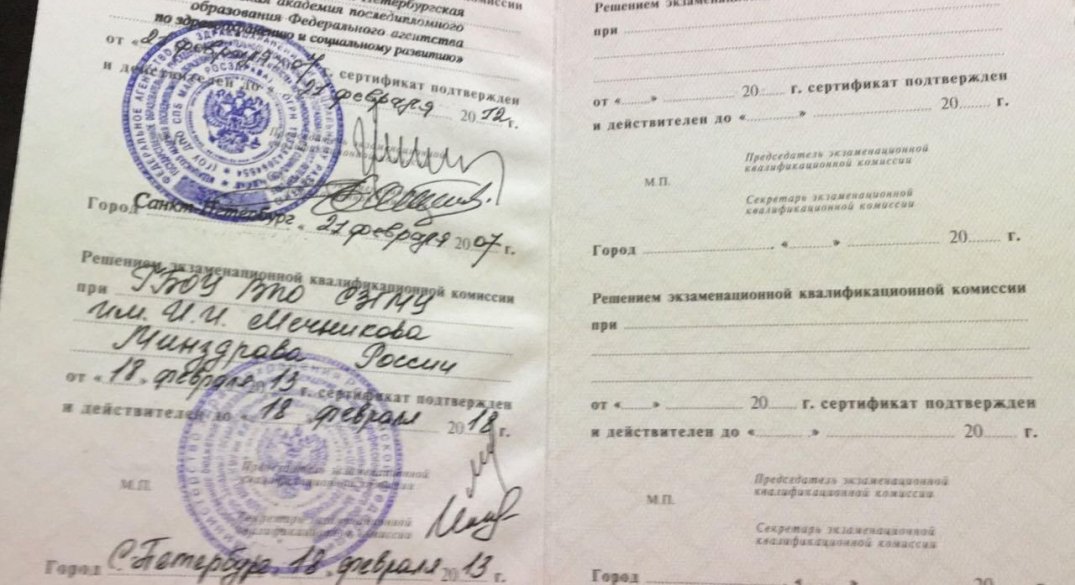 Петербургская
академия последипломного
образования Федерального агентства
по здравоохранению и социальному развитию»
от «21» февраля 2007 г. сертификат подтвержден
и действителен до «21» февраля 2012 г.
Председатель экзаменационной
квалификационной комиссии
Город Санкт-Петербург «21» февраля 2007 г.
Решением экзаменационной квалификационной комиссии
при ГБОУ ВПО СЗГМУ
им. И.И. Мечникова
Минздрава России
от «18» февраля 2013 г. сертификат подтвержден
и действителен до «18» февраля 2018 г.
Председатель экзаменационной
квалификационной комиссии
М.П.
Секретарь экзаменационной
квалификационной комиссии
Город С.-Петербург 18 февраля 2013 г.
Решением экзаменационной квалификационной
при
от «......» 20 г. сертификат подтвержден
и действителен до «......» 20 г.
Председатель экзаменационной
квалификационной комиссии
М.П.
Секретарь экзаменационной
квалификационной комиссии
Город «......» 20 г.
Решением экзаменационной квалификационной комиссии
при
от «......» 20 г. сертификат подтвержден
и действителен до «......» 20 г.
Председатель экзаменационной
квалификационной комиссии
М.П.
Секретарь экзаменационной
квалификационной комиссии
Город 20